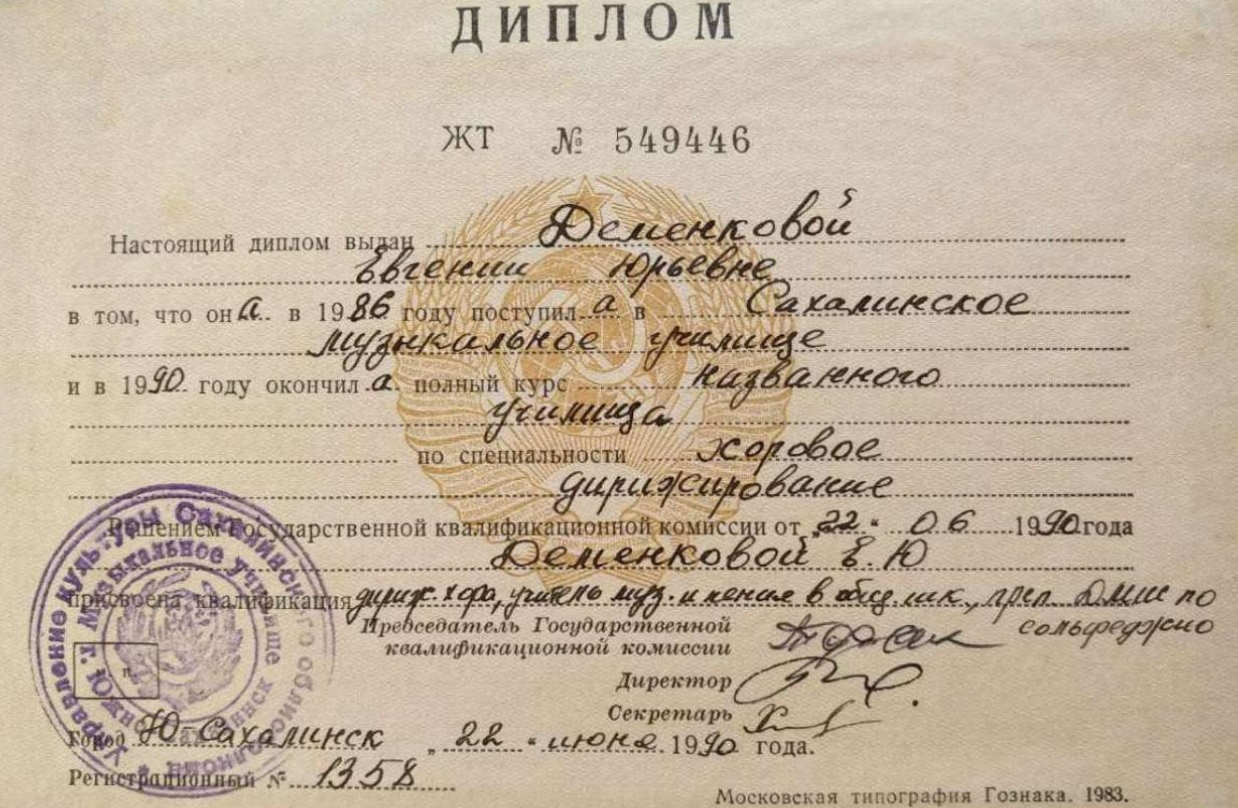 ДИПЛОМ
ЖТ № 549446
Настоящий диплом выдан Деменковой
Евгении Юрьевне
в том, что она в 1986 году поступила в Сахалинское
музыкальное училище
и в 1990 году окончила полный курс названного
училища
по специальности хоровое
дирижирование
Решением Государственной квалификационной комиссии от "22" 06 1990 года
Деменковой Е.Ю
присвоена квалификация дириж. хора, учитель муз. и пения в общ. шк., преп. ДМШ по
сольфеджио
Председатель Государственной
квалификационной комиссии
Директор
Секретарь
Город Ю-Сахалинск "22" июня 1990 года.
Регистрационный № 1358
Московская типография Гознака. 1983.
Управление культуры Сахалинского облисполкома
Музыкальное училище
г. Южно-Сахалинск